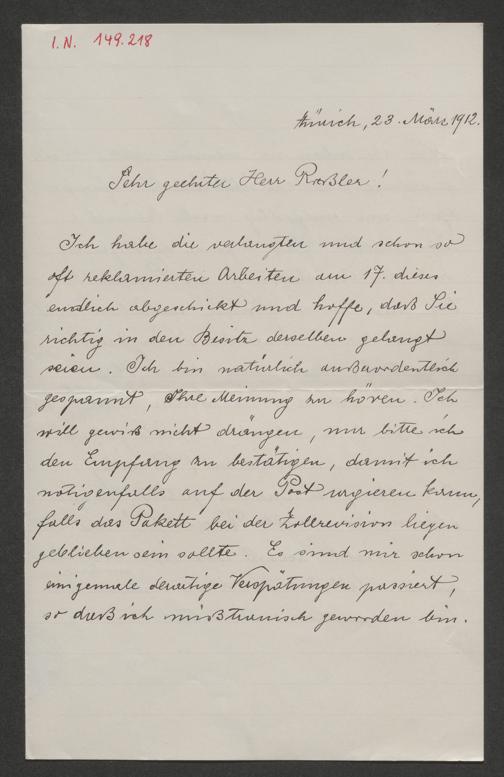 I.N. 149.218
Zürich, 23. März 1912.
Sehr geehrter Herr Roeßler!
Ich habe die verlangten und schon so
oft reklamierten Arbeiten am 17. dieses
endlich abgeschickt und hoffe, daß Sie
richtig in den Besitz derselben gelangt
seien. Ich bin natürlich außerordentlich
gespannt, Ihre Meinung zu hören. Ich
will gewiß nicht drängen, nur bitte ich
den Empfang zu bestätigen, damit ich
nötigenfalls auf der Post urgieren kann,
falls das Pakett bei der Zollrevision liegen
geblieben sein sollte. Es sind mir schon
einigemale derartige Verspätungen passiert,
so daß ich mißtrauisch geworden bin.